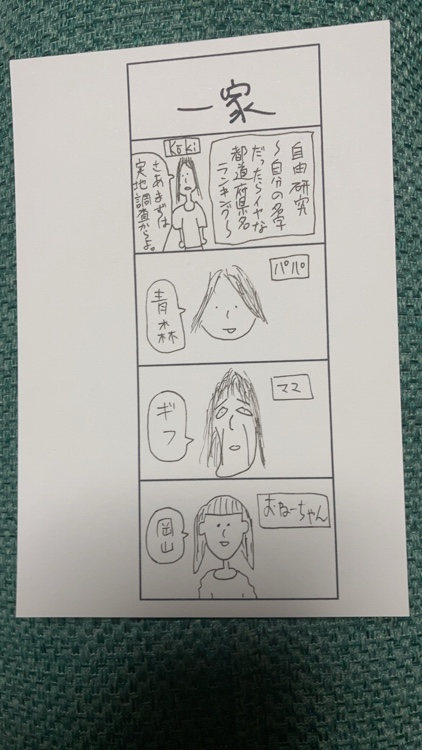 一家
自由研究
〜自分の名字
だったらイヤな
都道府県名
ランキング〜
Kōki
さあまずは
実地調査からよ。
パパ
青森
ママ
ギフ
おねーちゃん
岡山